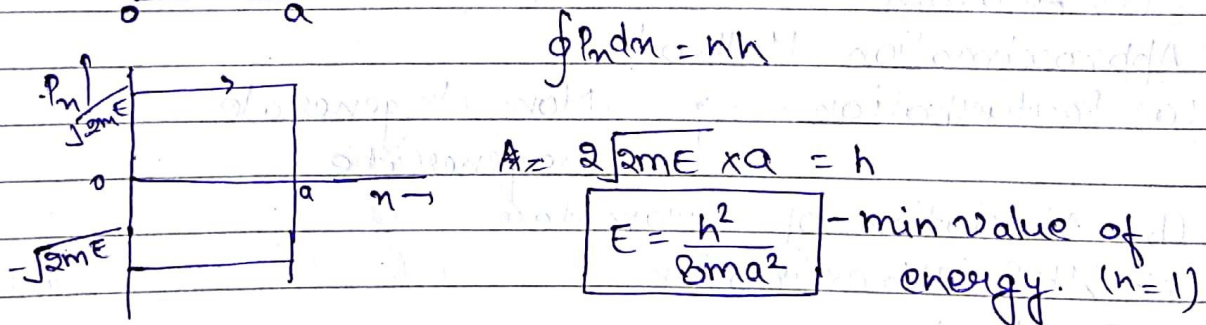 o a
∮Pₙdn = nh
Pₙ
√2mE
o
a n→
-√2mE
A = 2√2mE × a = h
E = h²/8ma² - min value of
energy. (n=1)